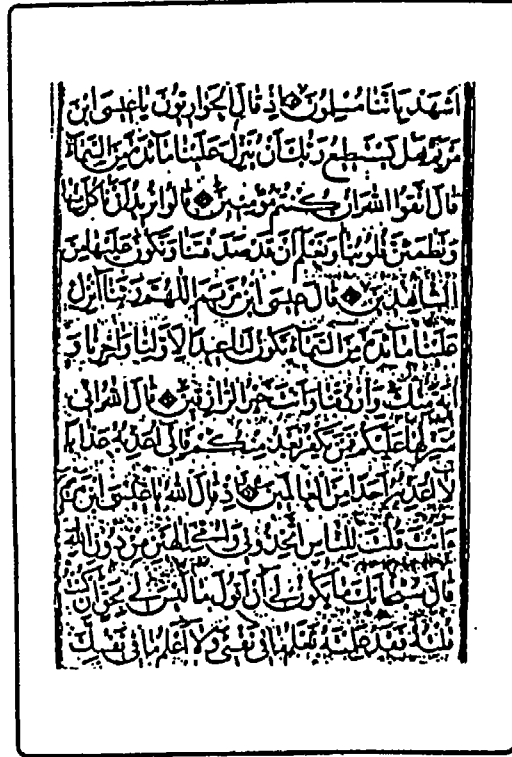 اشْهَدْ بِاَنَّنَا مُسْلِمُونَ اِذْ قَالَ الْحَوَارِيُّونَ يَا عِيسَى ابْنَ
مَرْيَمَ هَلْ يَسْتَطِيعُ رَبُّكَ اَنْ يُنَزِّلَ عَلَيْنَا مَآئِدَةً مِنَ السَّمَآءِ
قَالَ اتَّقُوا اللهَ اِنْ كُنْتُمْ مُؤْمِنِينَ قَالُوا نُرِيدُ اَنْ نَأْكُلَ مِنْهَا
وَتَطْمَئِنَّ قُلُوبُنَا وَنَعْلَمَ اَنْ قَدْ صَدَقْتَنَا وَنَكُونَ عَلَيْهَا مِنَ
الشَّاهِدِينَ قَالَ عِيسَى ابْنُ مَرْيَمَ اللّٰهُمَّ رَبَّنَا اَنْزِلْ
عَلَيْنَا مَآئِدَةً مِنَ السَّمَآءِ تَكُونُ لَنَا عِيدًا لِاَوَّلِنَا وَاٰخِرِنَا وَ
اٰيَةً مِنْكَ وَارْزُقْنَا وَاَنْتَ خَيْرُ الرَّازِقِينَ قَالَ اللهُ اِنِّي
مُنَزِّلُهَا عَلَيْكُمْ فَمَنْ يَكْفُرْ بَعْدُ مِنْكُمْ فَاِنِّي اُعَذِّبُهُ عَذَابًا
لَا اُعَذِّبُهُ اَحَدًا مِنَ الْعَالَمِينَ وَاِذْ قَالَ اللهُ يَا عِيسَى ابْنَ مَرْيَمَ
ءَاَنْتَ قُلْتَ لِلنَّاسِ اتَّخِذُونِي وَاُمِّيَ اِلٰهَيْنِ مِنْ دُونِ اللهِ
قَالَ سُبْحَانَكَ مَا يَكُونُ لِي اَنْ اَقُولَ مَا لَيْسَ لِي بِحَقٍّ اِنْ كُنْتُ
قُلْتُهُ فَقَدْ عَلِمْتَهُ تَعْلَمُ مَا فِي نَفْسِي وَلَا اَعْلَمُ مَا فِي نَفْسِكَ